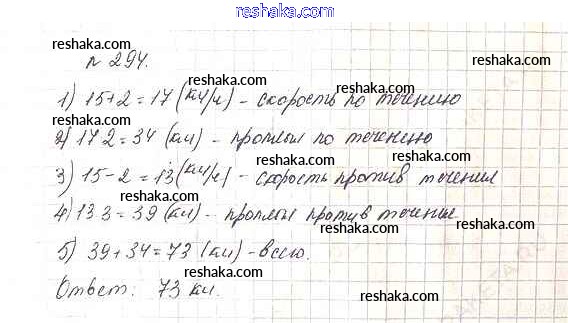 reshaka.com
reshaka.com
№ 294.
reshaka.com
reshaka.com
1) 15+2=17 (км/ч) - скорость по течению
reshaka.com
2) 17 2=34 (км) - проплыл по течению
reshaka.com
3) 15-2=13 (км/ч) - скорость против течения
reshaka.com
reshaka.com
4) 13 3=39 (км) - проплыл против течения
reshaka.com
5) 39+34=73 (км) - всего.
reshaka.com
reshaka.com
Ответ: 73 км.
reshaka.com